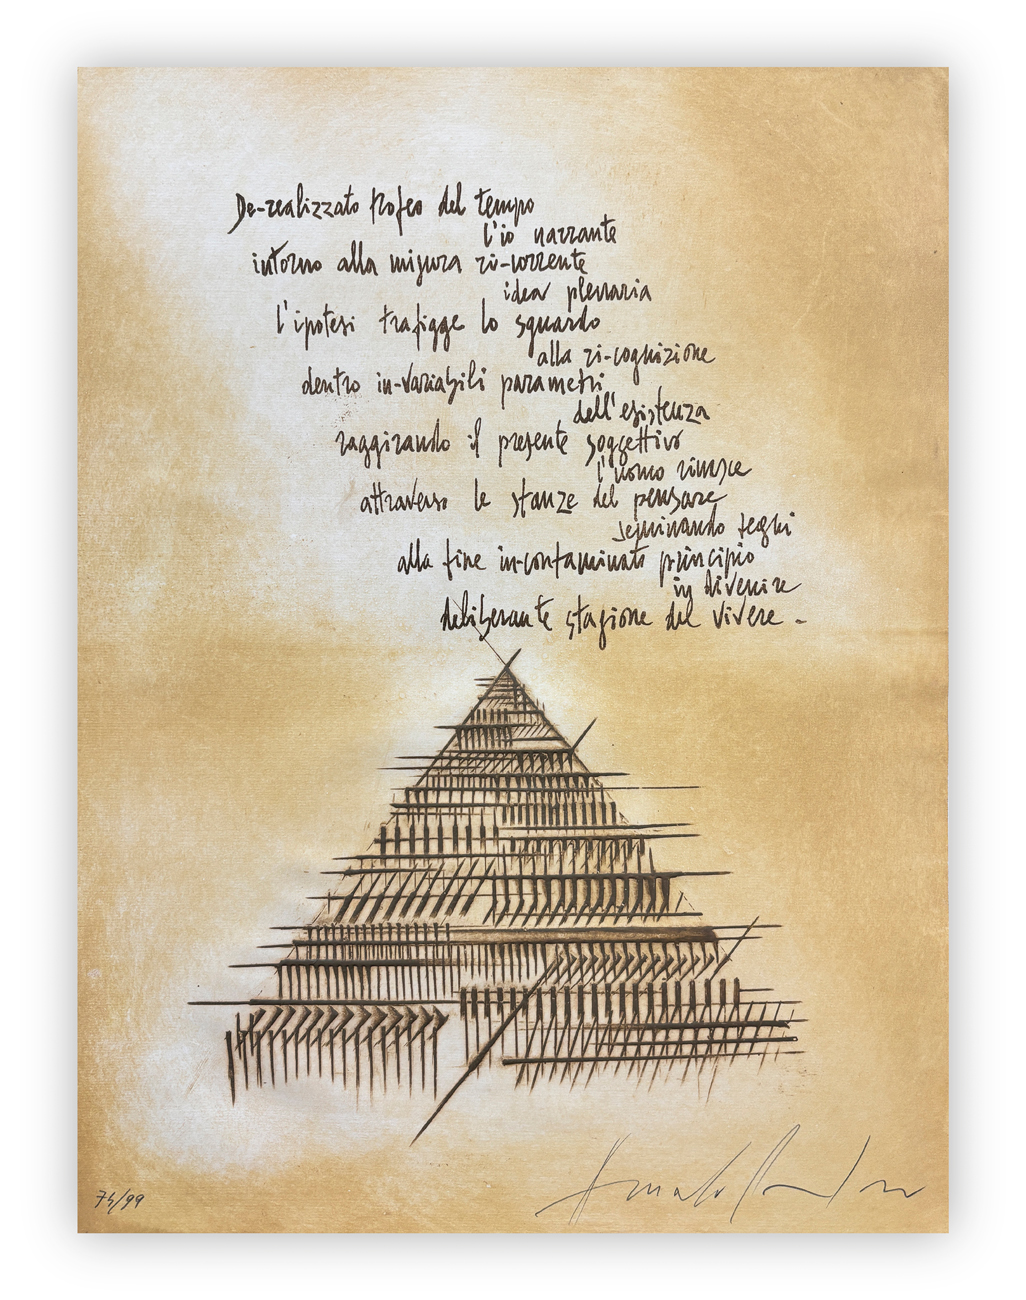 De-realizzato trofeo del tempo
l'io narrante
intorno alla misura ri-corrente
idea plenaria
l'ipotesi trafigge lo sguardo
alla ri-cognizione
dentro in-variabili parametri
dell'esistenza
raggirando il presente soggettivo
l'uomo rinasce
attraverso le stanze del pensare
seminando segni
alla fine in-contaminato principio
in divenire
deliberante stagione del vivere -
/99
Arnaldo Pomodoro